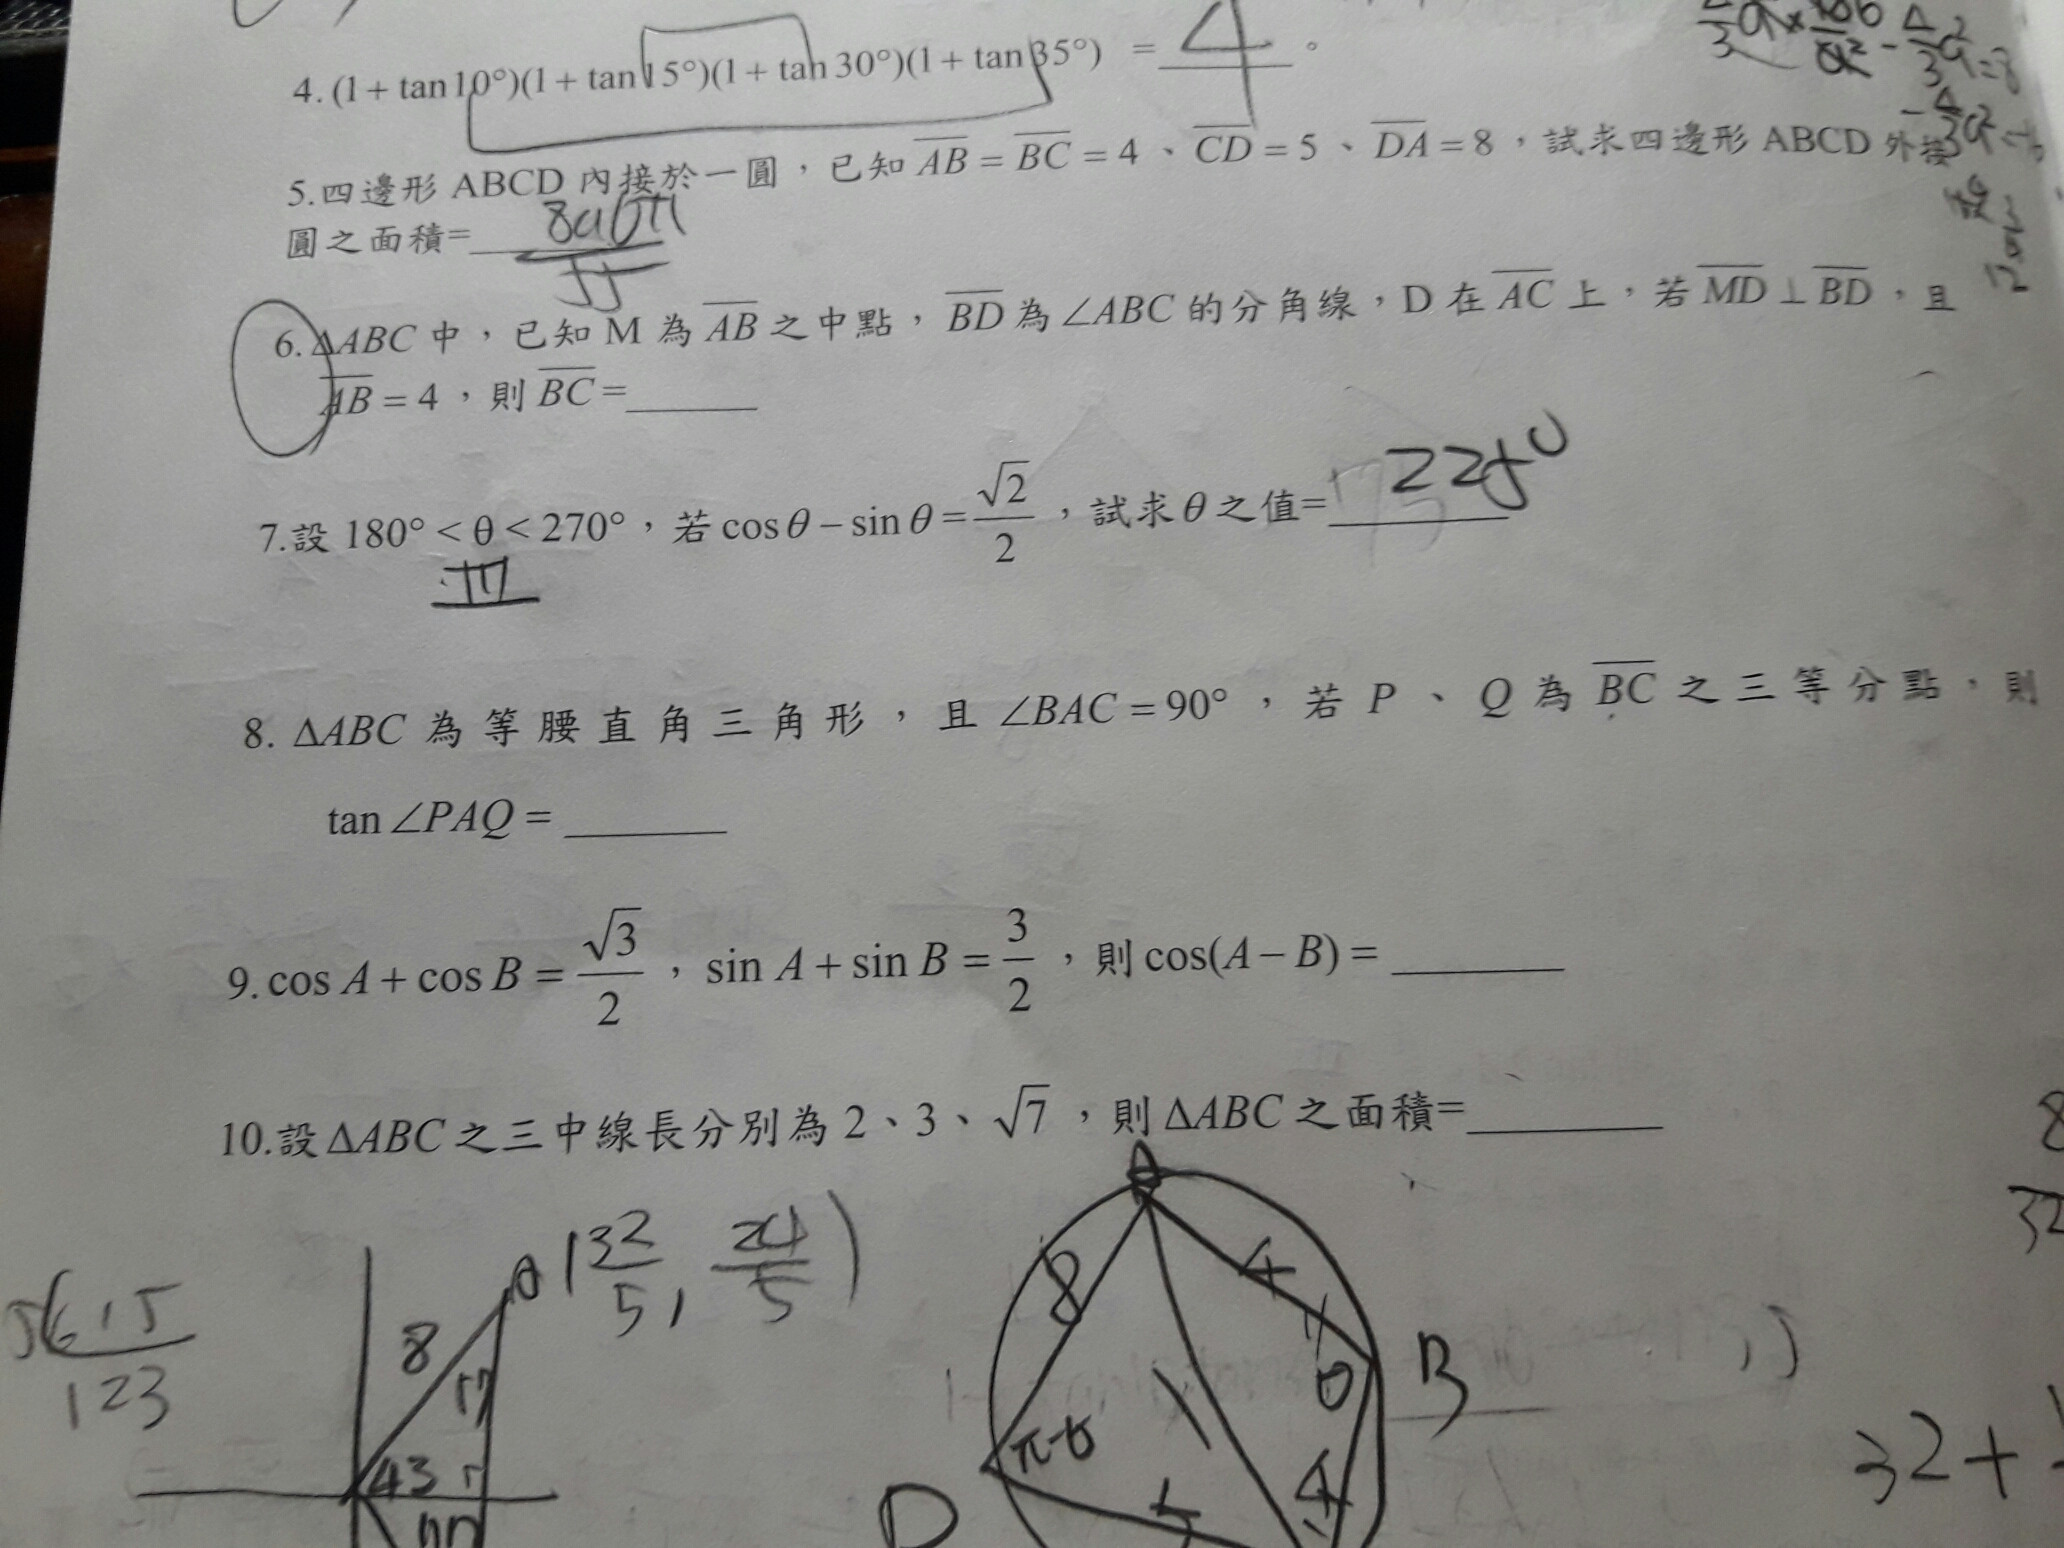 4. (1 + tan 10°)(1 + tan 15°)(1 + tan 30°)(1 + tan 35°) = 4 。
5.四邊形 ABCD 內接於一圓，已知 AB = BC = 4 、 CD = 5 、 DA = 8 ，試求四邊形 ABCD 外接
圓之面積=
6. ΔABC 中，已知 M 為 AB 之中點， BD 為 ∠ABC 的分角線，D 在 AC 上，若 MD ⊥ BD ，且
AB = 4 ，則 BC =
7.設 180° < θ < 270° ，若 cos θ − sin θ = √2/2 ，試求 θ 之值= 225°
III
8. ΔABC 為等腰直角三角形，且 ∠BAC = 90° ，若 P 、 Q 為 BC 之三等分點，則
tan ∠PAQ =
9. cos A + cos B = √3/2 ， sin A + sin B = 3/2 ，則 cos(A − B) =
10.設 ΔABC 之三中線長分別為 2、3、√7 ，則 ΔABC 之面積=
A (32/5, 24/5)
8
A
8
4
θ
B
π-θ
D
5
4
123
32+